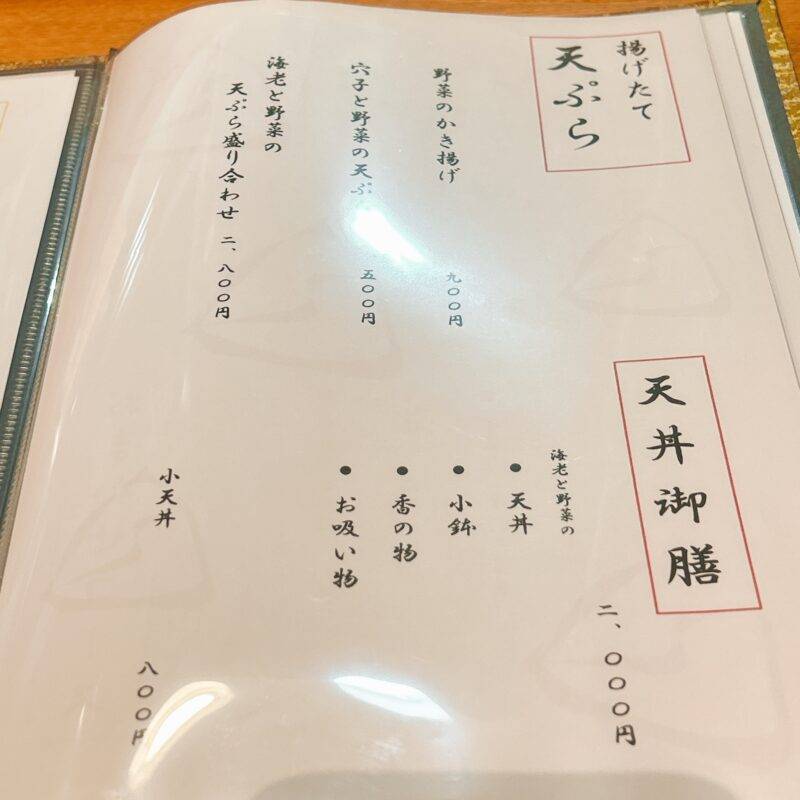 揚げたて
天ぷら
野菜のかき揚げ
九〇〇円
穴子と野菜の天ぷ
五〇〇円
海老と野菜の
天ぷら盛り合わせ 二、八〇〇円
天丼御膳
二、〇〇〇円
海老と野菜の
● 天丼
● 小鉢
● 香の物
● お吸い物
小天丼
八〇〇円